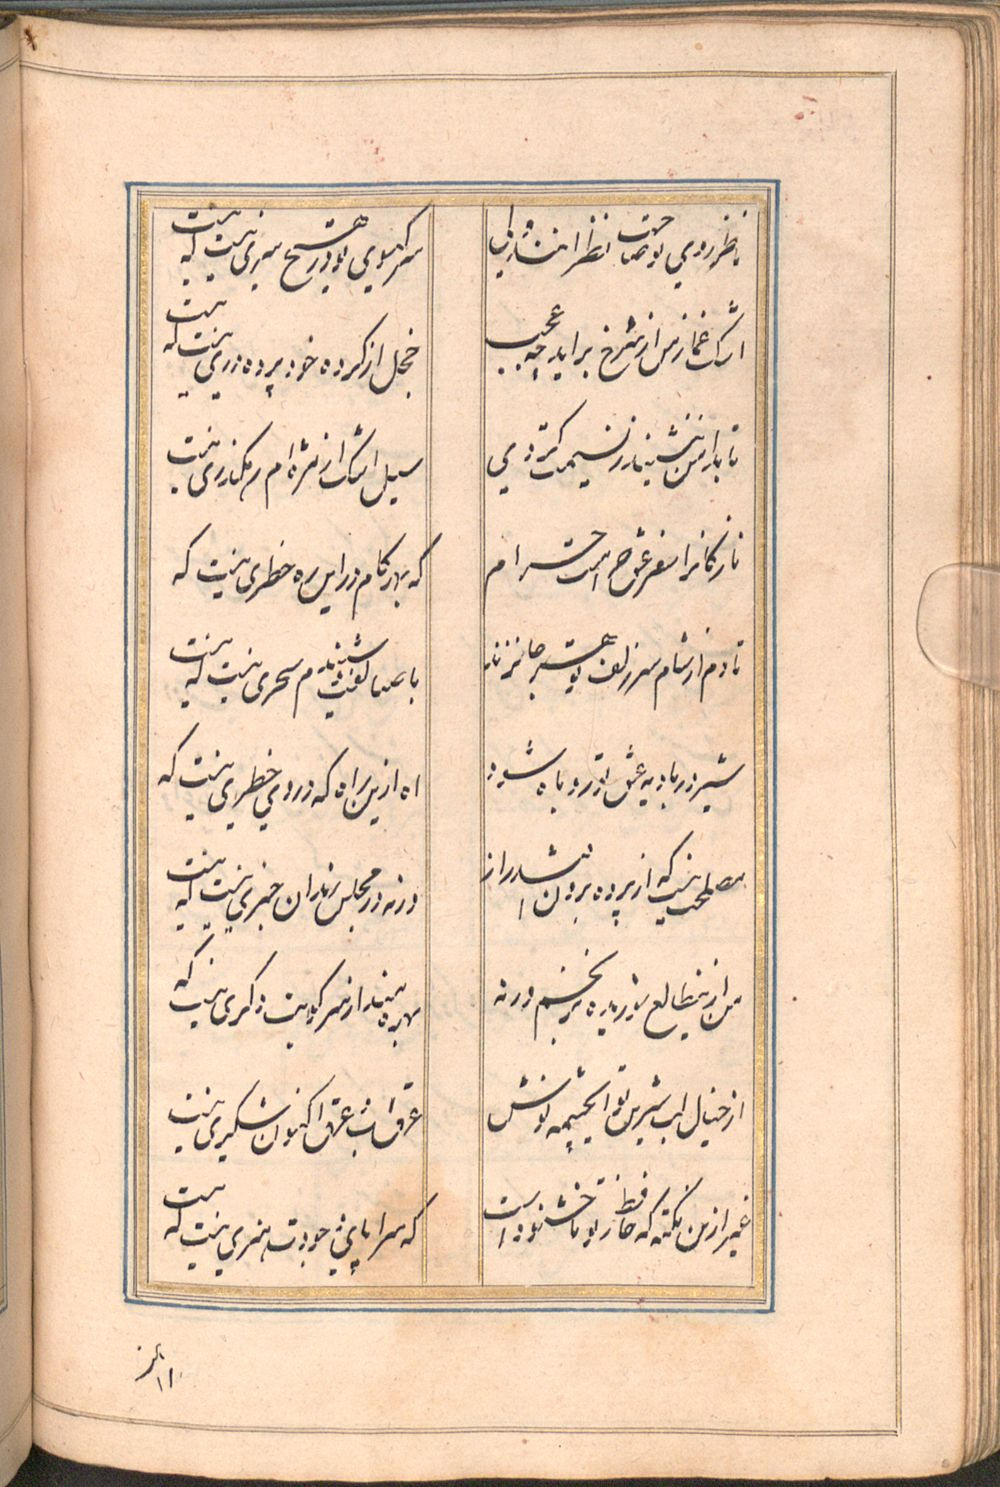 ناظر روی تو صاحب نظرانند ولی
سر گیسوی تو در هیچ سری نیست که نیست
اشک غماز من ار سرخ برآید چه عجب
خجل از کرده خود پرده دری نیست که نیست
تا بدامن ننشیند ز نسیمت گردی
سیل اشک از مژه ام بر گذری نیست
نازکانرا سفر عشق حرامست حرام
که بهر گام در این ره خطری نیست که
تا دم از شام سر زلف تو هر جا نزند
با صبا گفت و شنیدم سحری نیست که نیست
شیر در بادیه عشق تو روباه شود
اه ازین راه که در وی خطری نیست که
مصلحت نیست که از پرده برون افتد راز
ورنه در مجلس رندان خبری نیست که نیست
من ازین طالع شوریده برنجم ورنه
بهره مند از سر کویت دگری نیست که
از خیال لب شیرین تو ای چشمه نوش
غرق آب عرق اکنون شکری نیست
غیر ازین نکته که حافظ ز تو ناخشنودست
که سراپای وجودت هنری نیست که نیست